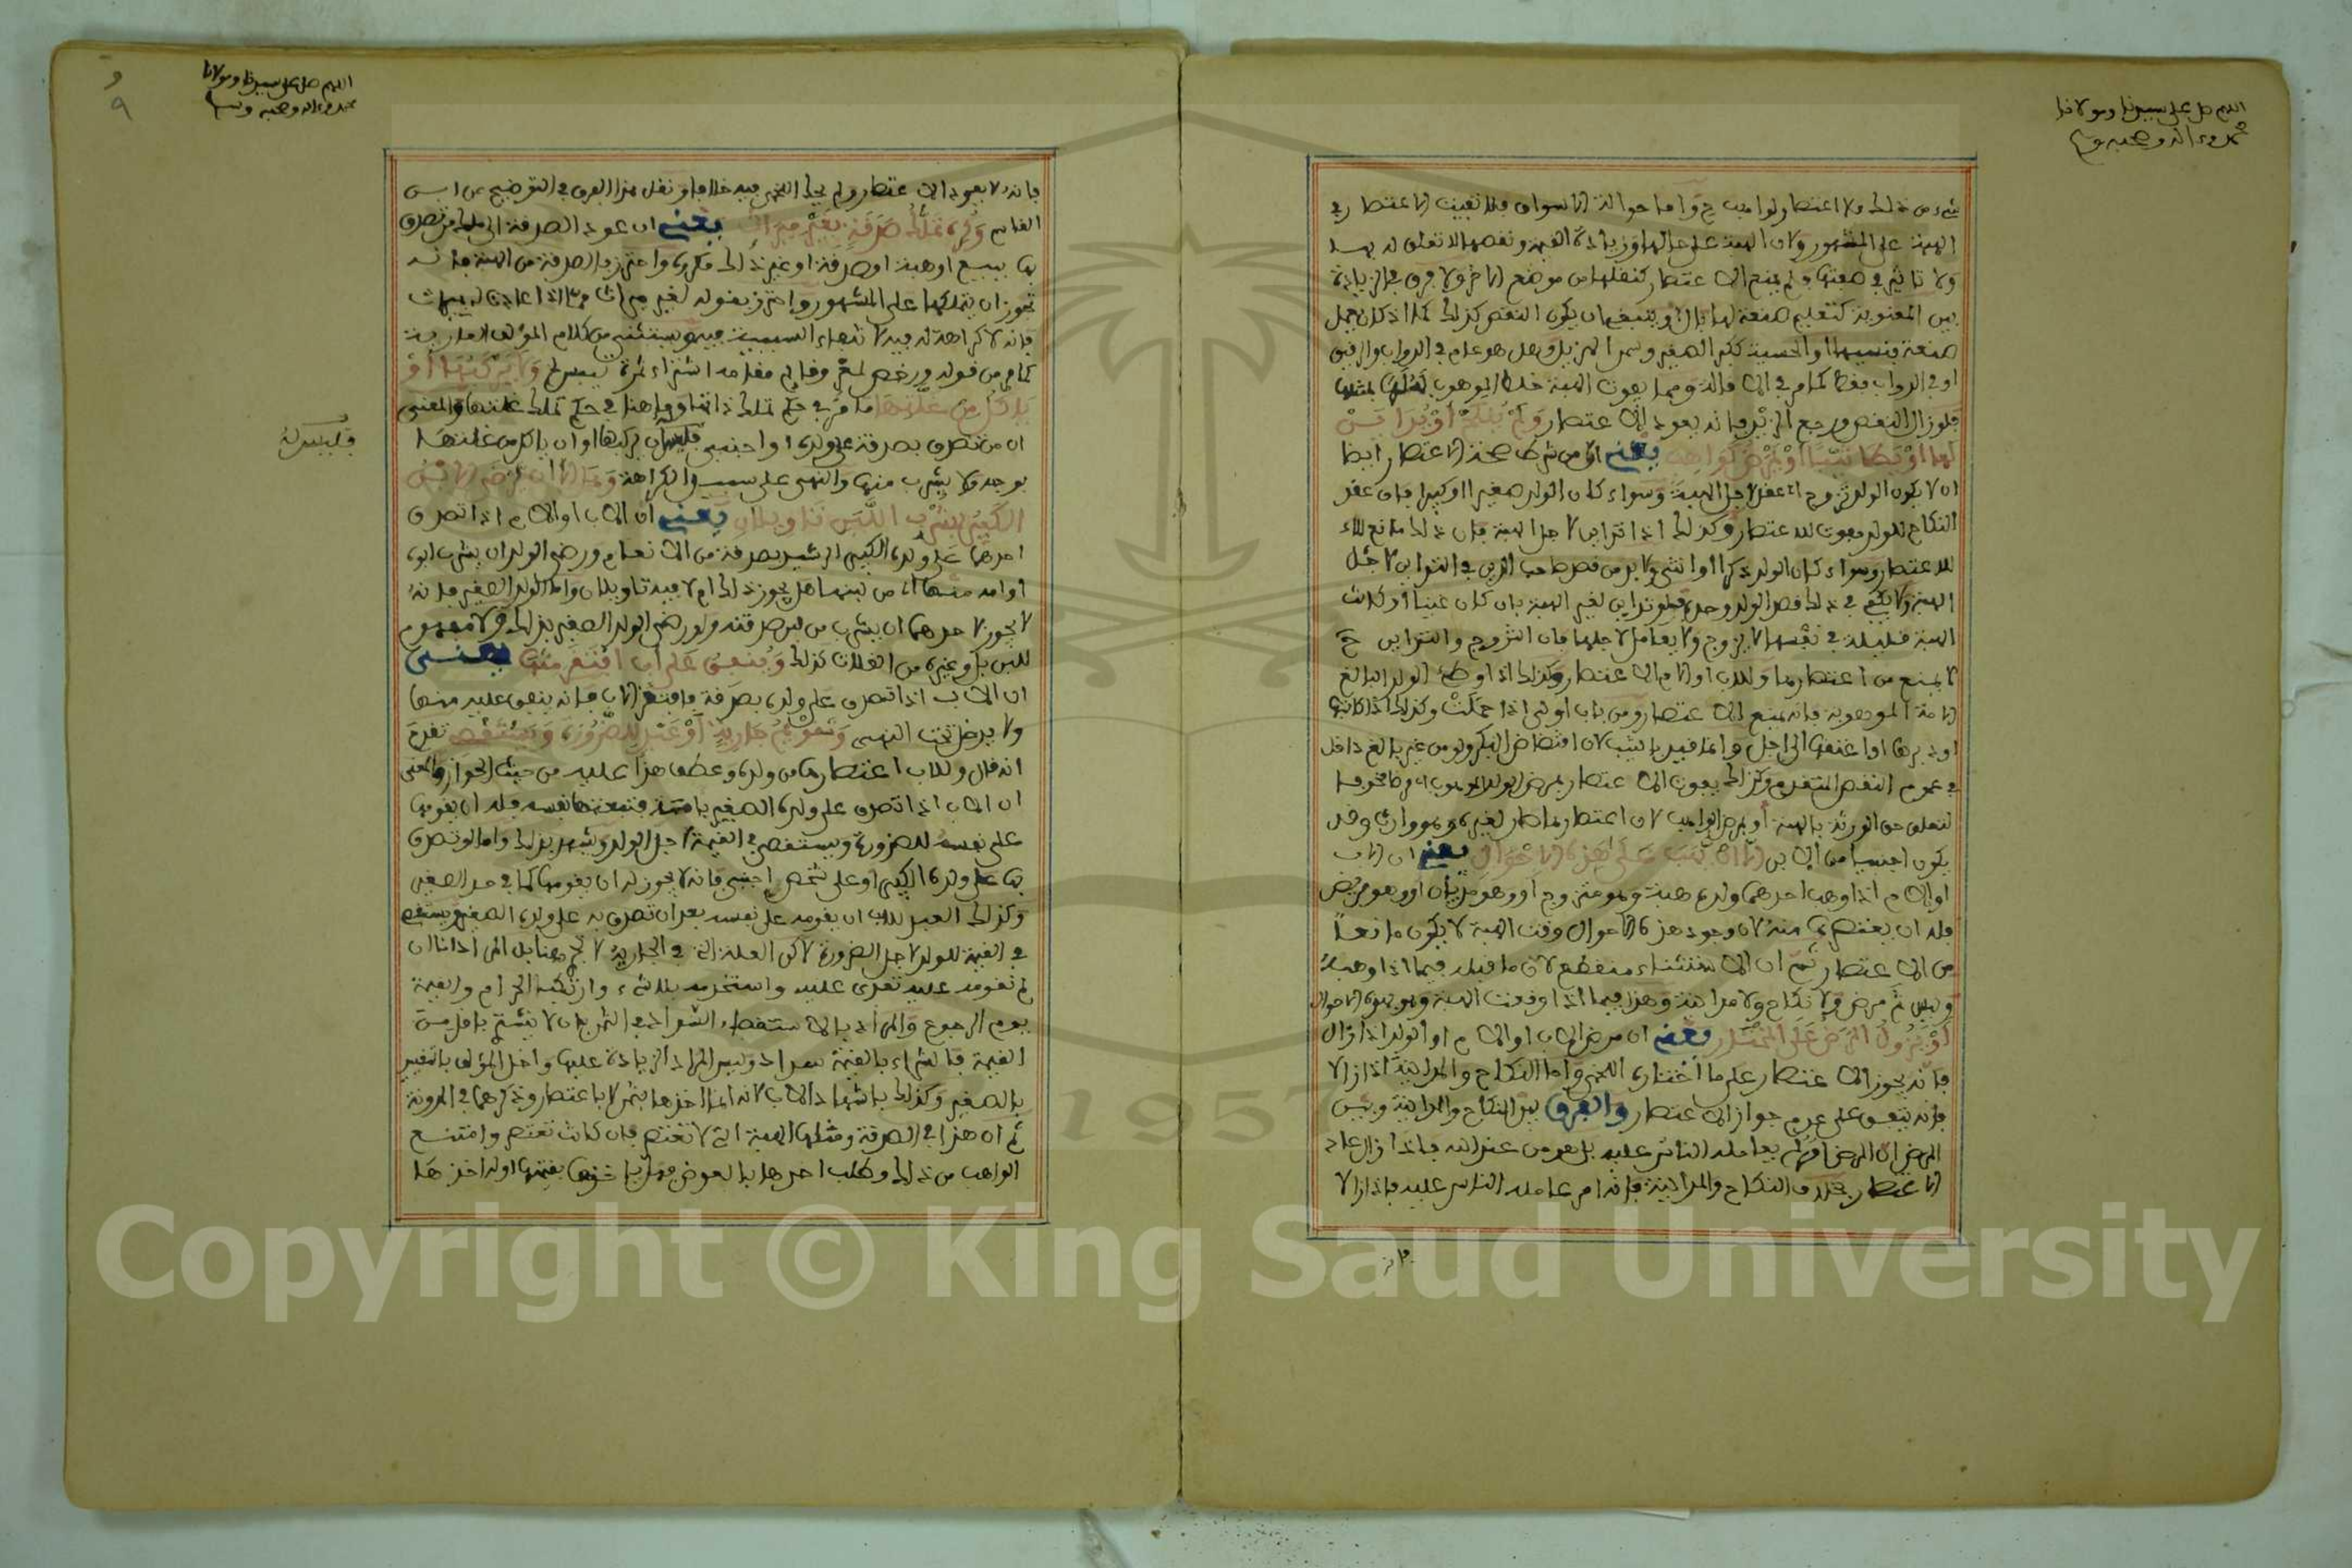 اللهم صل على سيدنا ومولانا
محمد وءاله وصحبه وسلم
شيء من ذلك ولا اعتصار لواهب ح واما حوالة الاسواق فلا تفيت الاعتصار في
الهبة على المشهور ولان الهبة على حالها وزيادة القيمة ونقصها لا تعلق له بها
ولا تاثير في صفتها ولم يمنع الاعتصار كنقلها من موضع لاخر ولا فرق في الزيادة
بين المعنوية كتعليم صنعة لها بال وينبغي ان يكون النقص كذلك كما اذا كان جمل
صنعة فنسيها او الحسية ككبر الصغير وسمن الهزيل وهل هو عام في الدواب والرقيق
او في الدواب فقط كما مر في الاقالة ومما يفوت الهبة خلط الموهوب بمثلها
فلو زال النقص ورجع الزيد فانه يعود الاعتصار ولم ينكح او يداين
لها او يطا ثيبا او يمرض كواهب يعني ان من شرط صحة الاعتصار ايضا
ان لا يكون الولد تزوج اي عقد لاجل الهبة وسواء كان الولد صغيرا او كبيرا فان عقد
النكاح للولد مفوت للاعتصار وكذلك اذا تداين لاجل الهبة فان ذلك مانع للاب
للاعتصار وسواء كان الولد ذكرا او انثى ولا بد من قصد صاحب الدين في التداين لاجل
الهبة ولا يكفي في ذلك قصد الولد وحده فلو تداين لغير الهبة بان كان غنيا او كانت
الهبة قليلة في نفسها لا يزوج ولا يعامل لاجلها فان التزوج والتداين ح
لا يمنع من اعتصارها وللاب او الام الاعتصار وكذلك اذا وطئ الولد البالغ
الامة الموهوبة فانه يمنع الاعتصار ومن باب اولى اذا حملت وكذلك اذا كاتبها
او دبرها او اعتقها الى اجل وانما قيد بالثيب لان افتضاض البكر ولو من غير بالغ داخل
في عموم النقص المتقدم وكذلك يفوت الاعتصار بمرض الولد الموهوب له مرضا مخوفا
لتعلق حق الورثة بالهبة او بمرض الواهب لان اعتصارها صار لغيره وهو وارث وقد
يكون اجنبيا من الابن الا ان يهب على هذه الاحوال يعني ان الاب
او الام اذا وهب احدهما ولده هبة وهو متزوج او وهو مديان او وهو مريض
فله ان يعتصر منه لان وجود هذه الاحوال وقت الهبة لا يكون مانعا
من الاعتصار ثم ان الاستثناء منقطع لان ما قبله فيما اذا وهبه
وليس ثم مرض ولا نكاح ولا مداينة وهذا فيما اذا وقعت الهبة وهو بهذه الاحوال
او يزول المرض على المختار يعني ان مرض الاب او الام او الولد اذا زال
فانه يجوز الاعتصار على ما اختاره اللخمي واما النكاح والمداينة اذا زالا
فانه يبقى على عدم جواز الاعتصار والفرق بين النكاح والمداينة وبين
المرض ان المرض امر لم يعامله الناس عليه بل هو من عند الله فاذا زال عاد
الاعتصار بخلاف النكاح والمداينة فانه امر عامله الناس عليه فاذا زالا
فانه
٩
اللهم صل على سيدنا ومولانا
محمد وءاله وصحبه وسلم
فانه لا يعود الاعتصار ولم يحك اللخمي فيه خلافا ونقل هذا الفرق في التوضيح عن ابن
القاسم وكره تملك صدقة بغير ميراث يعني ان عود الصدقة الى ملك من تصدق
بها ببيع او هبة او صدقة او غير ذلك مكروه واحترز بالصدقة من الهبة فانه
يجوز ان يتملكها على المشهور واحترز بقوله لغير ميراث مما اذا عادت له بميراث
فانه لا كراهة له فيه لانتفاء السببية فيه ويستثنى من كلام المؤلف العارية
كما مر من قوله ورخص لمعر وقائم مقامه اشتراء ثمرة تيبس لخ ولا يركبها او
ياكل من غلتها ما مر في حكم تملك ذاتها وما هنا في حكم تملك غلتها والمعنى
ان من تصدق بصدقة على ولده او اجنبي فليس له ان يركبها او ان ياكل من غلتها
فليس له
بوجه ولا يشرب منها والنهي على سبيل الكراهة وهل الا ان يرضى الابن
الكبير بشرب اللبن تاويلان يعني ان الاب او الام اذا تصدق
احدهما على ولده الكبير الرشيد بصدقة من الانعام ورضي الولد ان يشرب ابوه
او امه منها اي من لبنها هل يجوز ذلك ام لا فيه تاويلان واما الولد الصغير فانه
لا يجوز لاحدهما ان يشرب من لبن صدقته ولو رضي الولد الصغير بذلك ولا مفهوم
للبن بل وغيره من الغلات كذلك وينفق على اب افتقر منها يعني
ان الاب اذا تصدق على ولده بصدقة فافتقر الاب فانه ينفق عليه منها
ولا يدخل تحت النهي وتقويم جارية او عبد للضرورة ويستقصي تقدم
انه قال وللاب اعتصارها من ولده وعطف هذا عليه من حيث الجواز والمعنى
ان الاب اذا تصدق على ولده الصغير بامة فتبعتها نفسه فله ان يقومها
على نفسه للضرورة ويستقصي في القيمة لاجل الولد ويشهد بذلك واما لو تصدق
بها على ولده الكبير او على شخص اجنبي فانه لا يجوز له ان يقومها كما في حد الصغير
وكذلك العبد للاب ان يقومه على نفسه بعد ان تصدق به على ولده الصغير ويستقصي
في القيمة للولد لاجل الضرورة لاكن العلة التي في الجارية لا تجي هنا بل المراد اذا ان
لم تقومه عليه تعدى عليه واستخدمه بلا شيء وارتكب الحرام والقيمة
يوم الرجوع والمراد بالاستقصاء الشراء بالسداد في الثمن بان لا يشتري باقل من
القيمة فالشراء بالقيمة سداد وليس المراد الزيادة عليها واخل المؤلف بالتقييد
بالصغير وكذلك باشهاد الاب لانه انما اخذها بثمن لا باعتصار وذكرهما في المدونة
ثم ان هذا في الصدقة ومثلها الهبة التي لا تعتصر فان كانت تعتصر وامتنع
الواهب من ذلك وطلب اخذها بالعوض فهل ياخذها بقيمتها اوله اخذها
Copyright © King Saud University
1957